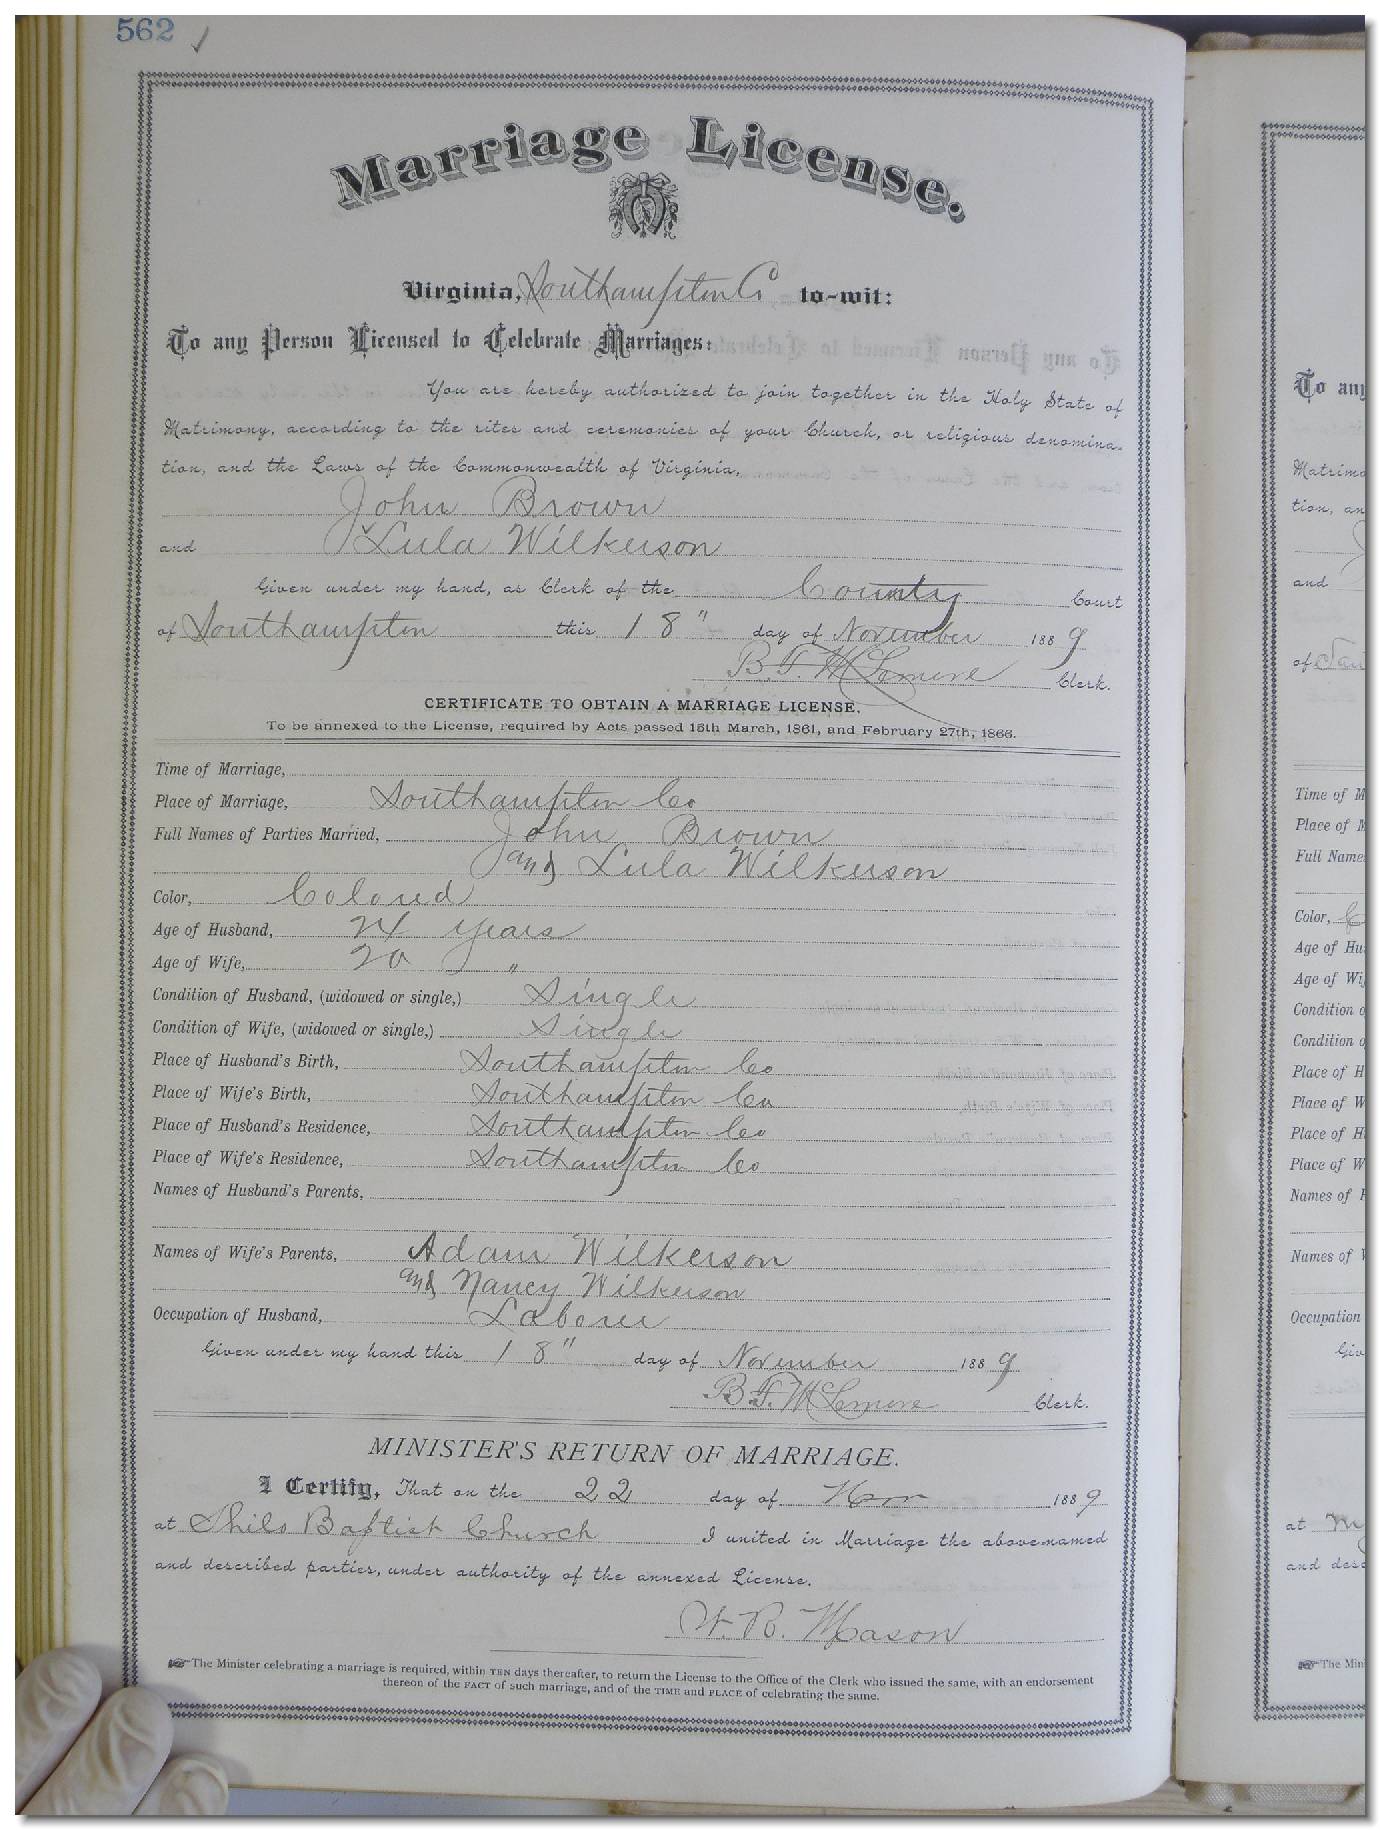 562
Marriage License.
Virginia, Southampton Co to-wit:
To any Person Licensed to Celebrate Marriages:
You are hereby authorized to join together in the Holy State of
Matrimony, according to the rites and ceremonies of your Church, or religious denomina-
tion, and the Laws of the Commonwealth of Virginia,
John Brown
and Lula Wilkerson
Given under my hand, as Clerk of the County Court
of Southampton this 18" day of November 1889
B. F. McLemore Clerk.
CERTIFICATE TO OBTAIN A MARRIAGE LICENSE.
To be annexed to the License, required by Acts passed 15th March, 1861, and February 27th, 1866.
Time of Marriage,
Place of Marriage, Southampton Co
Full Names of Parties Married, John Brown
and Lula Wilkerson
Color, Colored
Age of Husband, 24 years
Age of Wife, 20 "
Condition of Husband, (widowed or single,) Single
Condition of Wife, (widowed or single,) Single
Place of Husband's Birth, Southampton Co
Place of Wife's Birth, Southampton Co
Place of Husband's Residence, Southampton Co
Place of Wife's Residence, Southampton Co
Names of Husband's Parents,
Names of Wife's Parents, Adam Wilkerson
and Nancy Wilkerson
Occupation of Husband, Laborer
Given under my hand this 18" day of November 1889
B. F. McLemore Clerk.
MINISTER'S RETURN OF MARRIAGE.
I Certify, That on the 22 day of Nov 1889
at Shilo Baptist Church I united in Marriage the above-named
and described parties, under authority of the annexed License.
W. B. Mason
The Minister celebrating a marriage is required, within TEN days thereafter, to return the License to the Office of the Clerk who issued the same, with an endorsement
thereon of the FACT of such marriage, and of the TIME and PLACE of celebrating the same.
To any
Matrimo
tion, an
and
of
Time of M
Place of M
Full Name
Color, C
Age of Hu
Age of Wi
Condition o
Condition o
Place of H
Place of W
Place of H
Place of W
Names of H
Names of W
Occupation
Giv
at
and desc
The Min